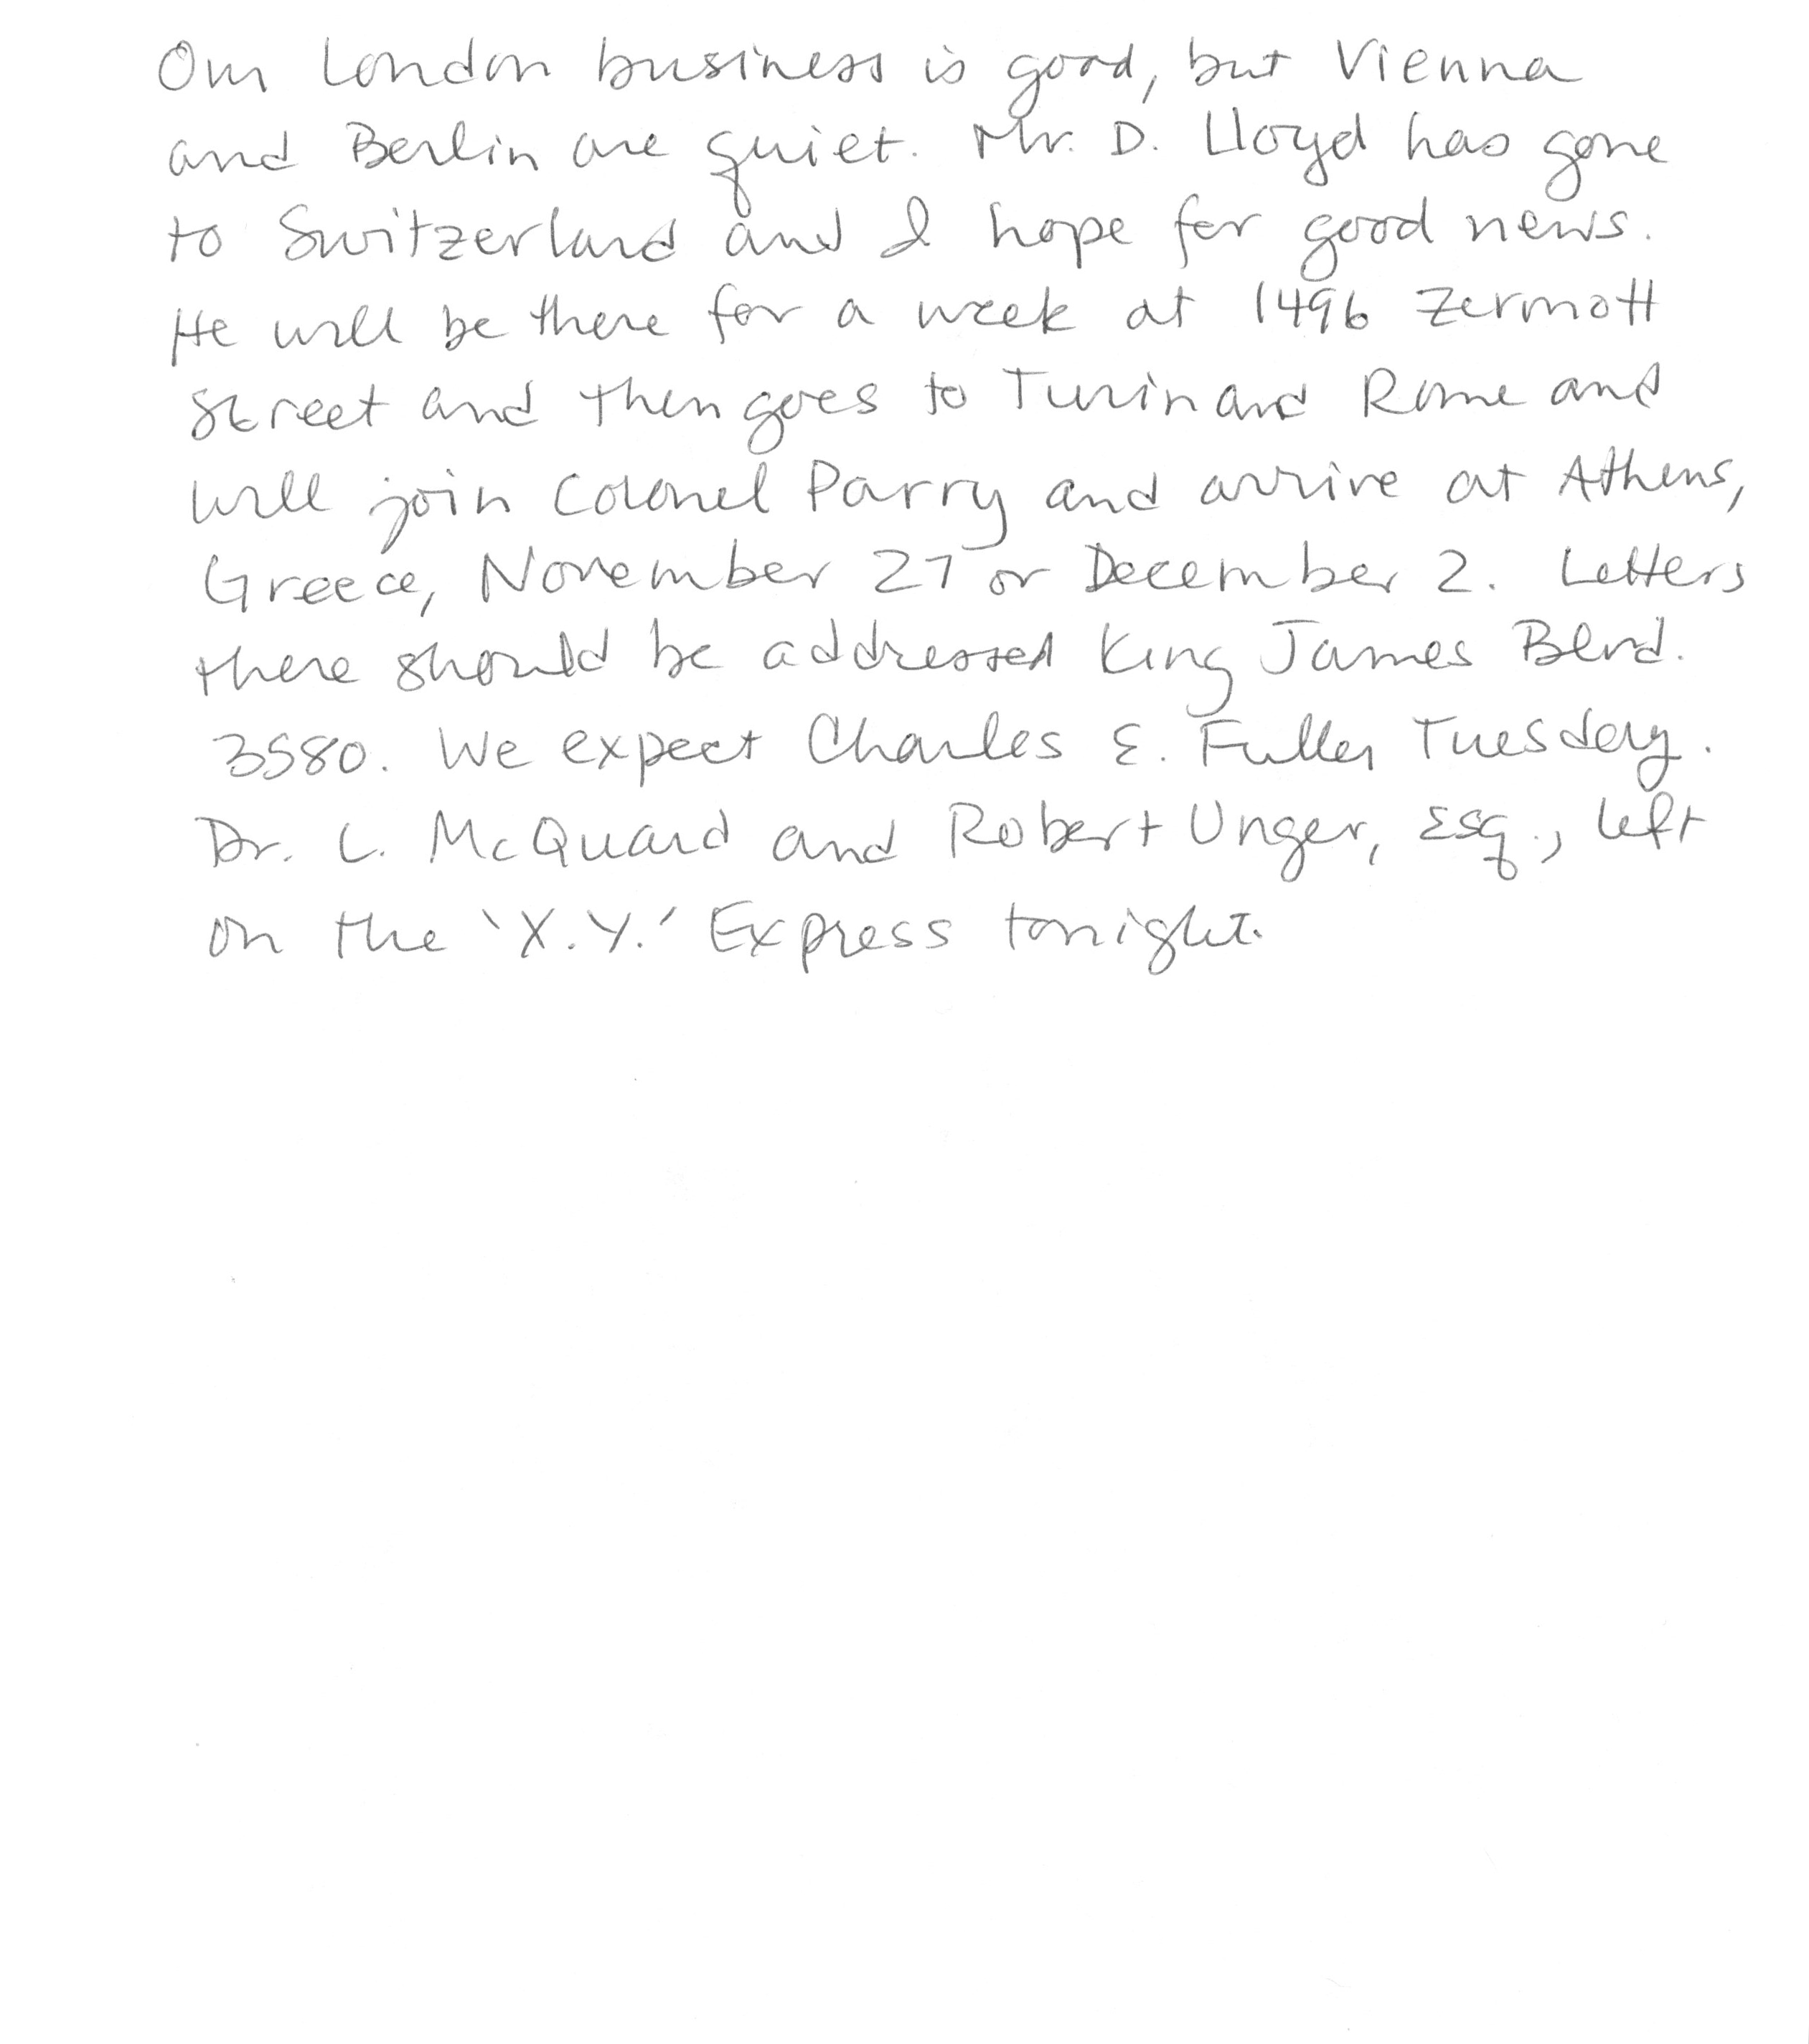 Our London business is good, but Vienna
and Berlin are quiet. Mr. D. Lloyd has gone
to Switzerland and I hope for good news.
He will be there for a week at 1496 Zermott
Street and then goes to Turin and Rome and
will join Colonel Parry and arrive at Athens,
Greece, November 27 or December 2. Letters
there should be addressed King James Blvd.
3580. We expect Charles E. Fuller Tuesday.
Dr. L. McQuaid and Robert Unger, Esq., left
on the 'X.Y.' Express tonight.